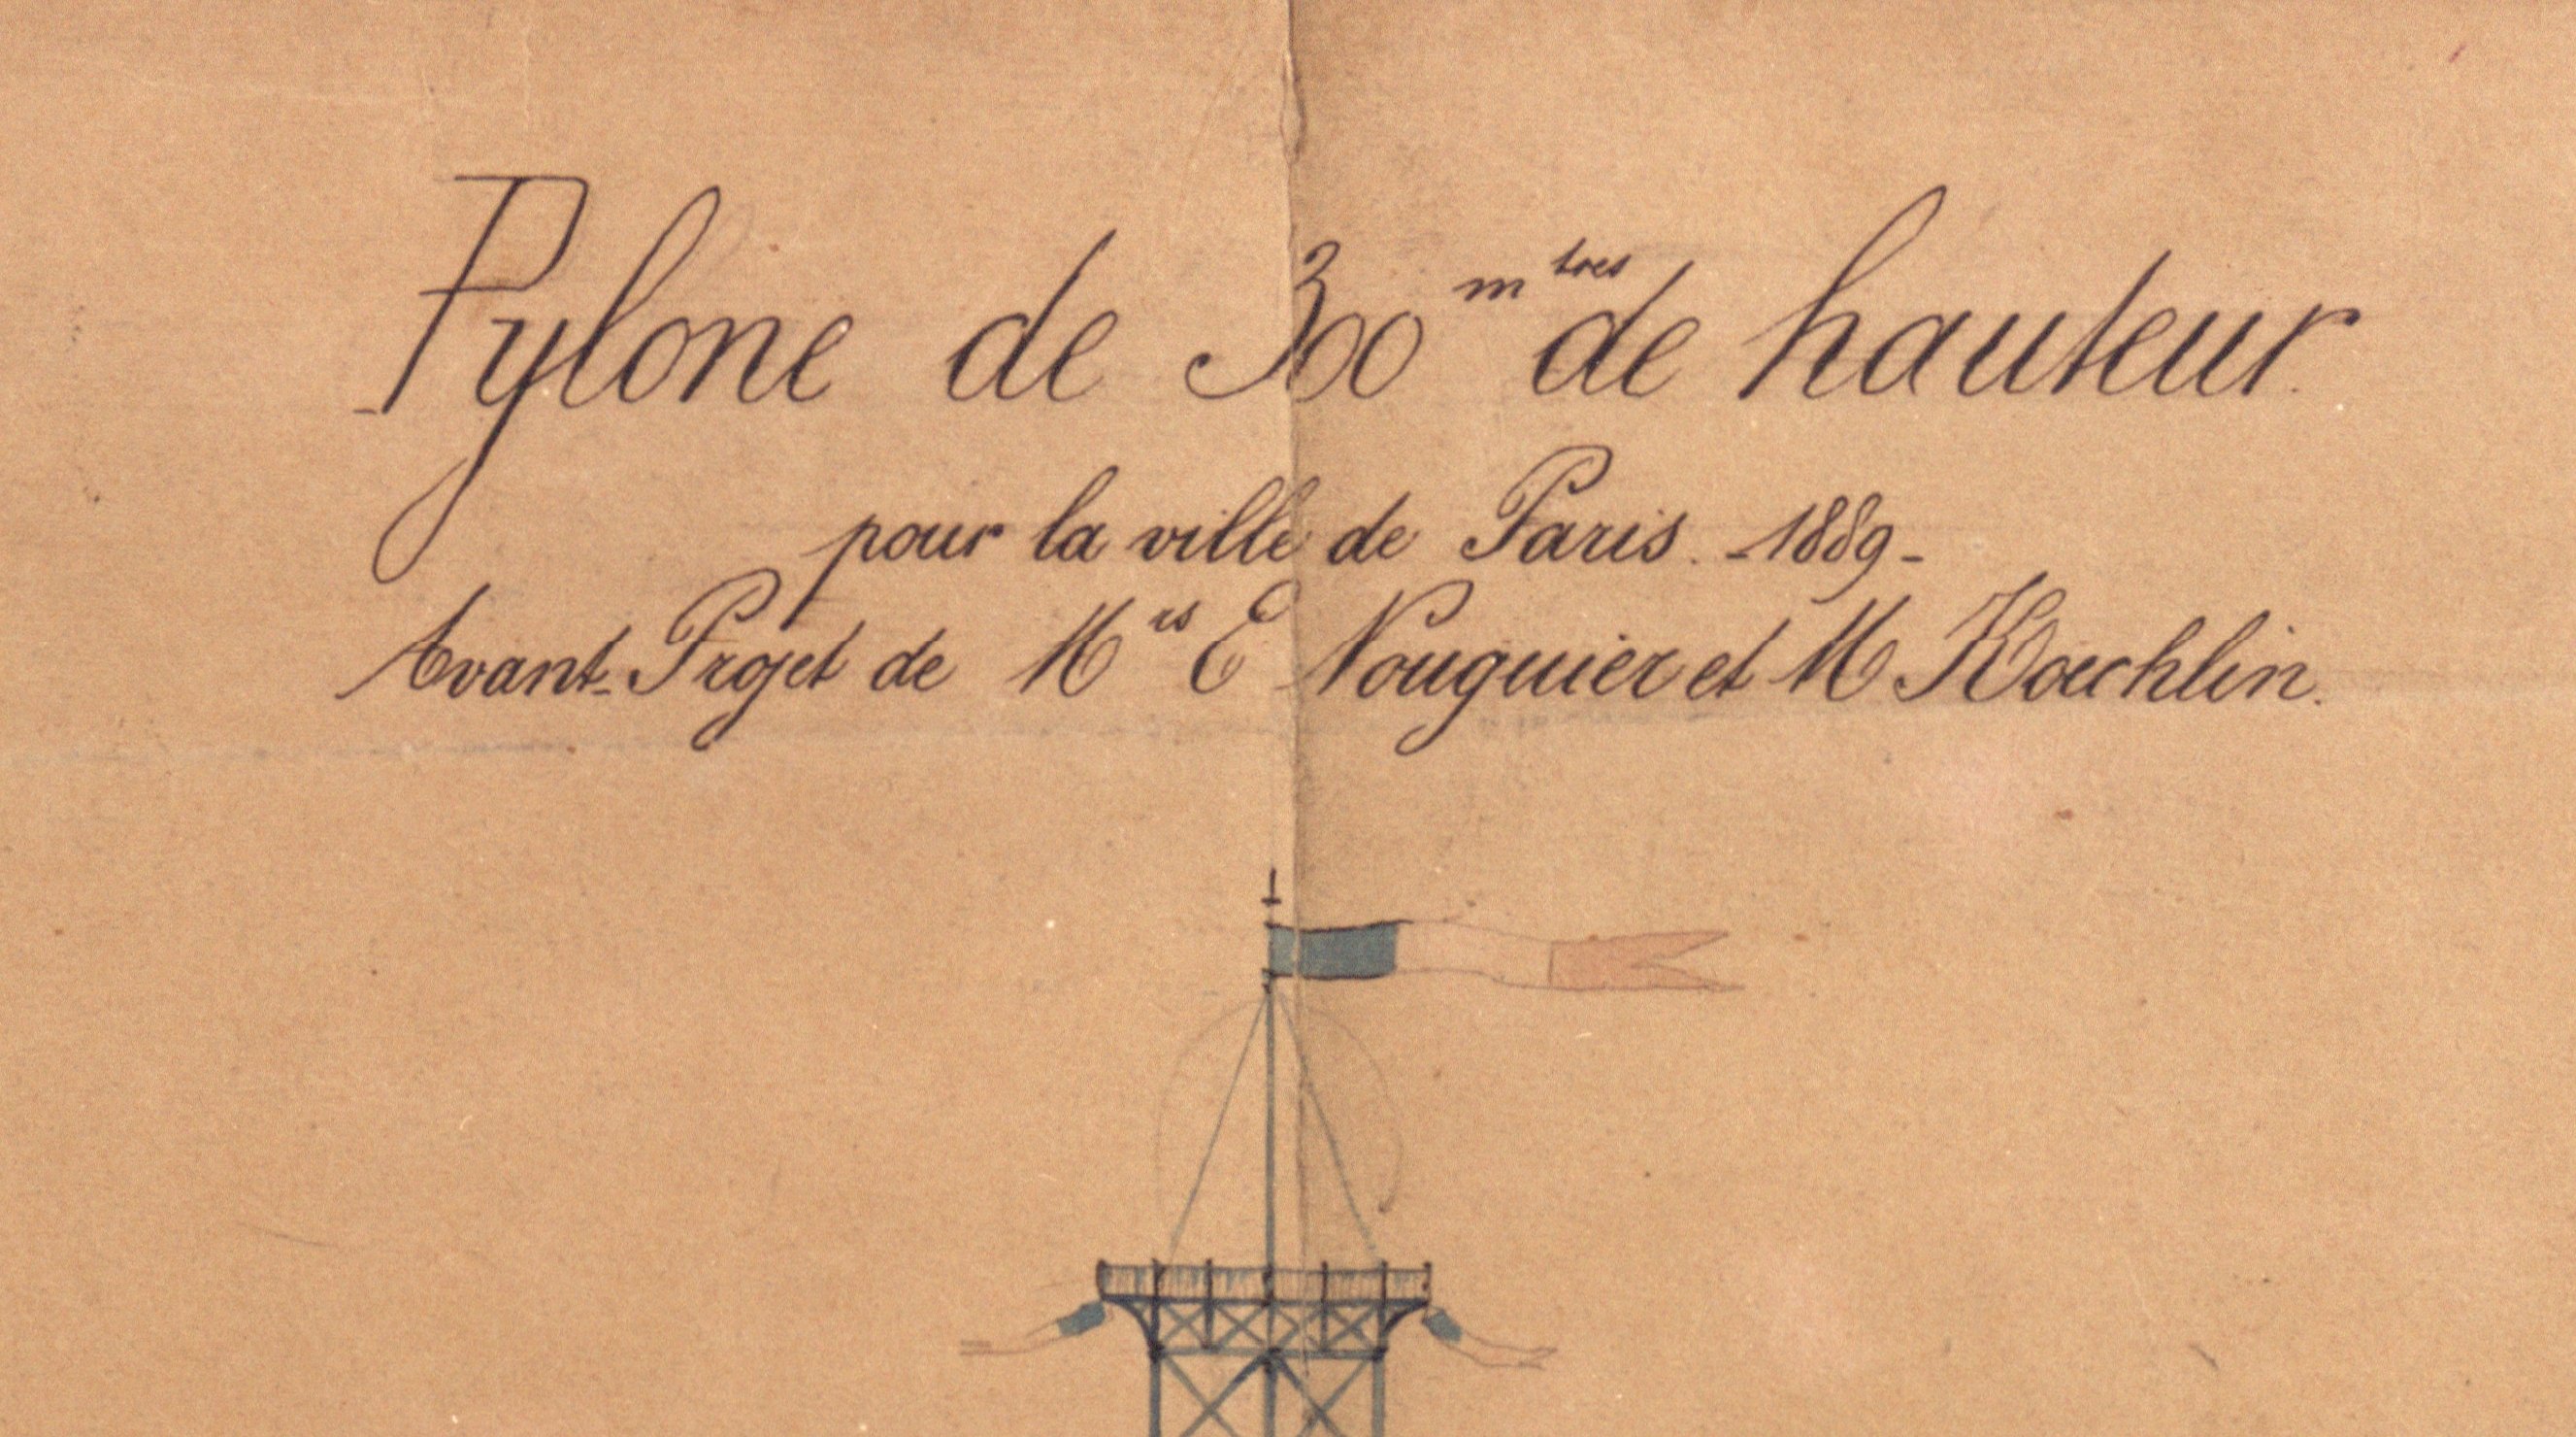 Pylone de 300 mtres de hauteur.
pour la ville de Paris. - 1889 -
Avant-Projet de Mrs E Nouguier et M Koechlin.